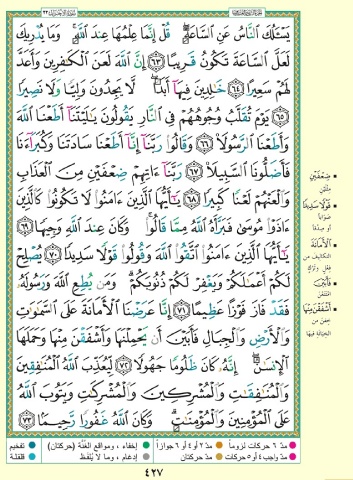 يَسْـَٔلُكَ ٱلنَّاسُ عَنِ ٱلسَّاعَةِ ۖ قُلْ إِنَّمَا عِلْمُهَا عِندَ ٱللَّهِ ۚ وَمَا يُدْرِيكَ
لَعَلَّ ٱلسَّاعَةَ تَكُونُ قَرِيبًا ٦٣ إِنَّ ٱللَّهَ لَعَنَ ٱلْكَٰفِرِينَ وَأَعَدَّ
لَهُمْ سَعِيرًا ٦٤ خَٰلِدِينَ فِيهَآ أَبَدًا ۖ لَّا يَجِدُونَ وَلِيًّا وَلَا نَصِيرًا
٦٥ يَوْمَ تُقَلَّبُ وُجُوهُهُمْ فِى ٱلنَّارِ يَقُولُونَ يَٰلَيْتَنَآ أَطَعْنَا ٱللَّهَ
وَأَطَعْنَا ٱلرَّسُولَا۠ ٦٦ وَقَالُوا۟ رَبَّنَآ إِنَّآ أَطَعْنَا سَادَتَنَا وَكُبَرَآءَنَا
فَأَضَلُّونَا ٱلسَّبِيلَا۠ ٦٧ رَبَّنَآ ءَاتِهِمْ ضِعْفَيْنِ مِنَ ٱلْعَذَابِ
وَٱلْعَنْهُمْ لَعْنًا كَبِيرًا ٦٨ يَٰٓأَيُّهَا ٱلَّذِينَ ءَامَنُوا۟ لَا تَكُونُوا۟ كَٱلَّذِينَ
ءَاذَوْا۟ مُوسَىٰ فَبَرَّأَهُ ٱللَّهُ مِمَّا قَالُوا۟ ۚ وَكَانَ عِندَ ٱللَّهِ وَجِيهًا ٦٩
يَٰٓأَيُّهَا ٱلَّذِينَ ءَامَنُوا۟ ٱتَّقُوا۟ ٱللَّهَ وَقُولُوا۟ قَوْلًا سَدِيدًا ٧٠ يُصْلِحْ
لَكُمْ أَعْمَٰلَكُمْ وَيَغْفِرْ لَكُمْ ذُنُوبَكُمْ ۗ وَمَن يُطِعِ ٱللَّهَ وَرَسُولَهُۥ
فَقَدْ فَازَ فَوْزًا عَظِيمًا ٧١ إِنَّا عَرَضْنَا ٱلْأَمَانَةَ عَلَى ٱلسَّمَٰوَٰتِ
وَٱلْأَرْضِ وَٱلْجِبَالِ فَأَبَيْنَ أَن يَحْمِلْنَهَا وَأَشْفَقْنَ مِنْهَا وَحَمَلَهَا
ٱلْإِنسَٰنُ ۖ إِنَّهُۥ كَانَ ظَلُومًا جَهُولًا ٧٢ لِّيُعَذِّبَ ٱللَّهُ ٱلْمُنَٰفِقِينَ
وَٱلْمُنَٰفِقَٰتِ وَٱلْمُشْرِكِينَ وَٱلْمُشْرِكَٰتِ وَيَتُوبَ ٱللَّهُ
عَلَى ٱلْمُؤْمِنِينَ وَٱلْمُؤْمِنَٰتِ ۗ وَكَانَ ٱللَّهُ غَفُورًا رَّحِيمًۢا ٧٣
ضِعْفَيْنِ
مِثْلَيْن
قَوْلًا سَدِيدًا
صَوَابًا
أو صِدْقًا
الأمَانَةَ
التكاليف من
فِعْلٍ وتَرْكٍ
فَأَبَيْنَ
امْتَنَعْنَ
أَشْفَقْنَ مِنْهَا
خِفْنَ من
الخيانة فيها
مدّ ٦ حركات لزوماً
مدّ ٢ أو ٤ أو ٦ جوازاً
إخفاء، ومواقع الغُنَّة (حركتان)
تفخيم
مدّ واجب ٤ أو ٥ حركات
مدّ حركتان
إدغام، وما لا يُلفظ
قلقلة
٤٢٧